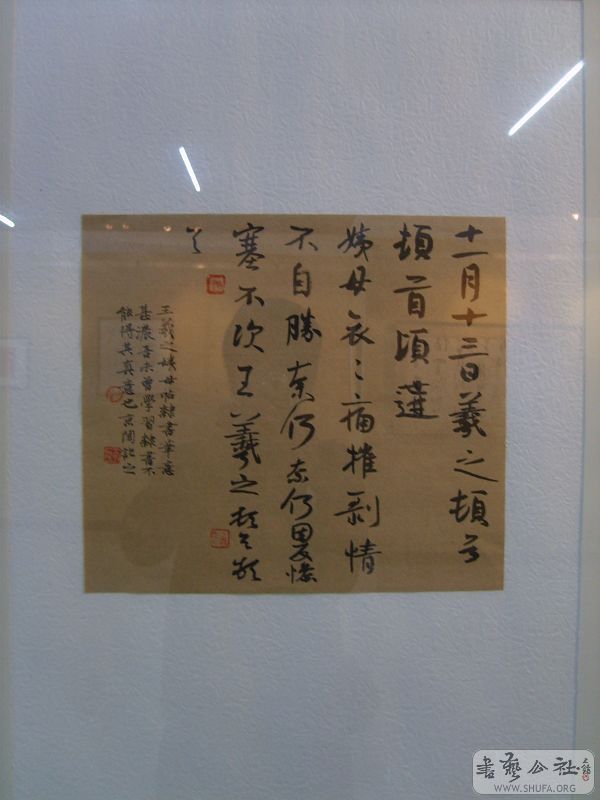 十一月十三日羲之頓首
頓首頃遘
姨母哀〻痛摧剝情
不自勝奈何奈何因反慘
塞不次王羲之頓首頓
首
王羲之姨母帖隸書筆意
甚濃吾未曾學習隸書不
能得其真意也京記之
書藝公社
WWW.SHUFA.ORG